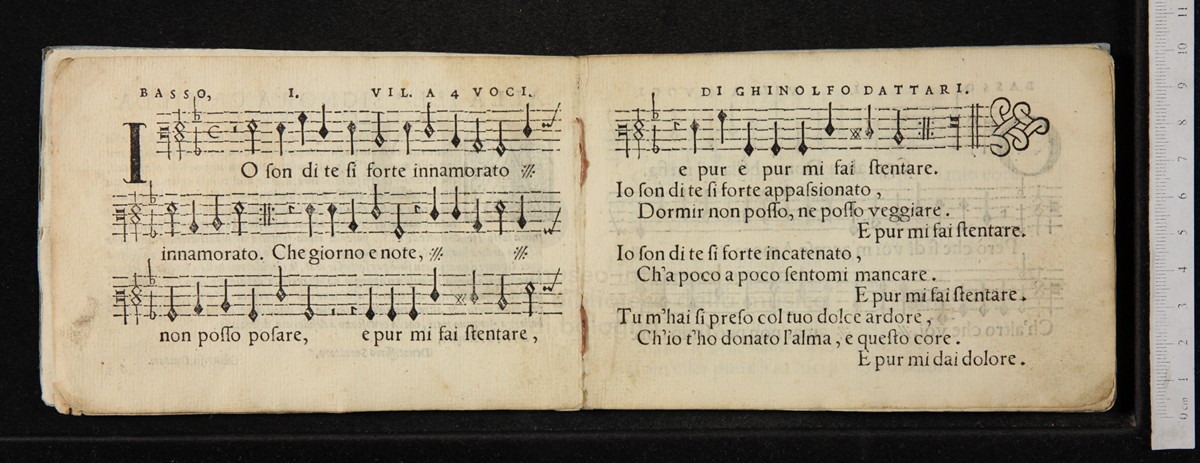 BASSO, I. VIL. A 4 VOCI.
IO ſon di te ſi forte innamorato
innamorato. Che giorno e note,
non poſſo poſare, e pur mi fai ſtentare,
DI GHINOLFO DATTARI.
e pur e pur mi fai ſtentare.
Io ſon di te ſi forte appaſsionato,
Dormir non poſſo, ne poſſo veggiare.
E pur mi fai ſtentare.
Io ſon di te ſi forte incatenato,
Ch'a poco a poco ſentomi mancare.
E pur mi fai ſtentare.
Tu m'hai ſi preſo col tuo dolce ardore,
Ch'io t'ho donato l'alma, e queſto core.
E pur mi dai dolore.
0 cm 1 2 3 4 5 6 7 8 9 10 11